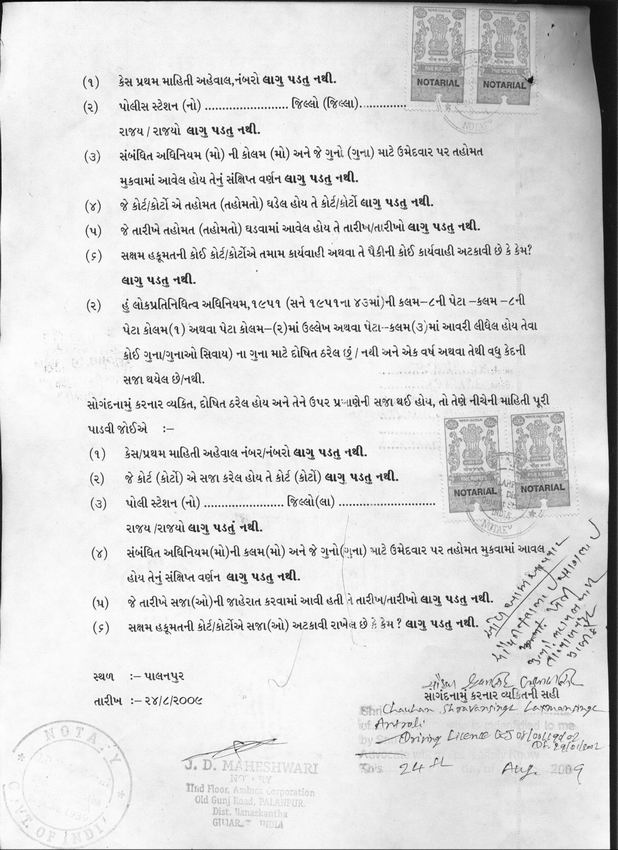 NOTARIAL NOTARIAL
(૧) કેસ પ્રથમ માહિતી અહેવાલ,નંબરો લાગુ પડતુ નથી.
(૨) પોલીસ સ્ટેશન (નો) ........................ જિલ્લો (જિલ્લા).............
રાજય / રાજયો લાગુ પડતુ નથી.
(૩) સંબંધિત અધિનિયમ (મો) ની કોલમ (મો) અને જે ગુનો (ગુના) માટે ઉમેદવાર પર તહોમત
મુકવામાં આવેલ હોય તેનું સંક્ષિપ્ત વર્ણન લાગુ પડતુ નથી.
(૪) જે કોર્ટ/કોર્ટો એ તહોમત (તહોમતો) ઘડેલ હોય તે કોર્ટ/કોર્ટો લાગુ પડતુ નથી.
(૫) જે તારીખે તહોમત (તહોમતો) ઘડવામાં આવેલ હોય તે તારીખ/તારીખો લાગુ પડતુ નથી.
(૬) સક્ષમ હકૂમતની કોઈ કોર્ટ/કોર્ટોએ તમામ કાર્યવાહી અથવા તે પૈકીની કોઈ કાર્યવાહી અટકાવી છે કે કેમ?
લાગુ પડતુ નથી.
(૨) હું લોકપ્રતિનિધિત્વ અધિનિયમ,૧૯૫૧ (સને ૧૯૫૧ના ૪૩માં)ની કલમ-૮ની પેટા -કલમ -૮ની
પેટા કોલમ(૧) અથવા પેટા કોલમ-(૨)માં ઉલ્લેખ અથવા પેટા--કલમ(૩)માં આવરી લીધેલ હોય તેવા
કોઈ ગુના/ગુનાઓ સિવાય) ના ગુના માટે દોષિત ઠરેલ છું / નથી અને એક વર્ષ અથવા તેથી વધુ કેદની
સજા થયેલ છે/નથી.
સોગંદનામું કરનાર વ્યકિત, દોષિત ઠરેલ હોય અને તેને ઉપર પ્રમાણેની સજા થઈ હોય, તો તેણે નીચેની માહિતી પૂરી
પાડવી જોઈએ :-
(૧) કેસ/પ્રથમ માહિતી અહેવાલ નંબર/નંબરો લાગુ પડતુ નથી.
(૨) જે કોર્ટ (કોર્ટો) એ સજા કરેલ હોય તે કોર્ટ (કોર્ટો) લાગુ પડતુ નથી.
(૩) પોલી સ્ટેશન (નો) ........................ જિલ્લો(લા) ............................
રાજય /રાજયો લાગુ પડતું નથી.
NOTARIAL NOTARIAL
(૪) સંબંધિત અધિનિયમ(મો)ની કલમ(મો) અને જે ગુનો(ગુના) માટે ઉમેદવાર પર તહોમત મુકવામાં આવલ
હોય તેનું સંક્ષિપ્ત વર્ણન લાગુ પડતુ નથી.
(૫) જે તારીખે સજા(ઓ)ની જાહેરાત કરવામાં આવી હતી તે તારીખ/તારીખો લાગુ પડતુ નથી.
(૬) સક્ષમ હકૂમતની કોર્ટ/કોર્ટોએ સજા(ઓ) અટકાવી રાખેલ છે કે કેમ ? લાગુ પડતુ નથી.
સ્થળ :- પાલનપુર
તારીખ :- ૨૪/૮/૨૦૦૯
સોગંદનામું કરનાર વ્યકિતની સહી
Shri Chauhan Shravansingh Laxmansingh
Driving Licence
This 24 th day of Aug. 2009
NOTARY
GOVT. OF INDIA
J. D. MAHESHWARI
NOTARY
IInd Floor, Ambica Corporation
Old Gunj Road, PALANPUR.
Dist. Banaskantha
GUJARAT INDIA